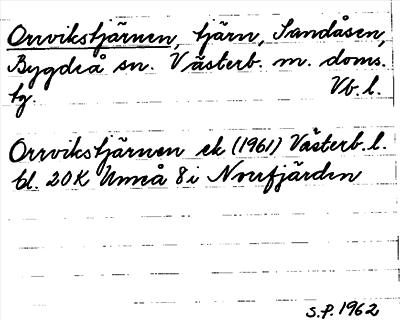 Orrvikstjärnen, tjärn, Sandåsen,
Bygdeå sn. Västerb. m. doms.
tg. Vb. l.
Orrvikstjärnen ek (1961) Västerb. l.
bl. 20 K Umeå 8 i Norrfjärden
S.P. 1962